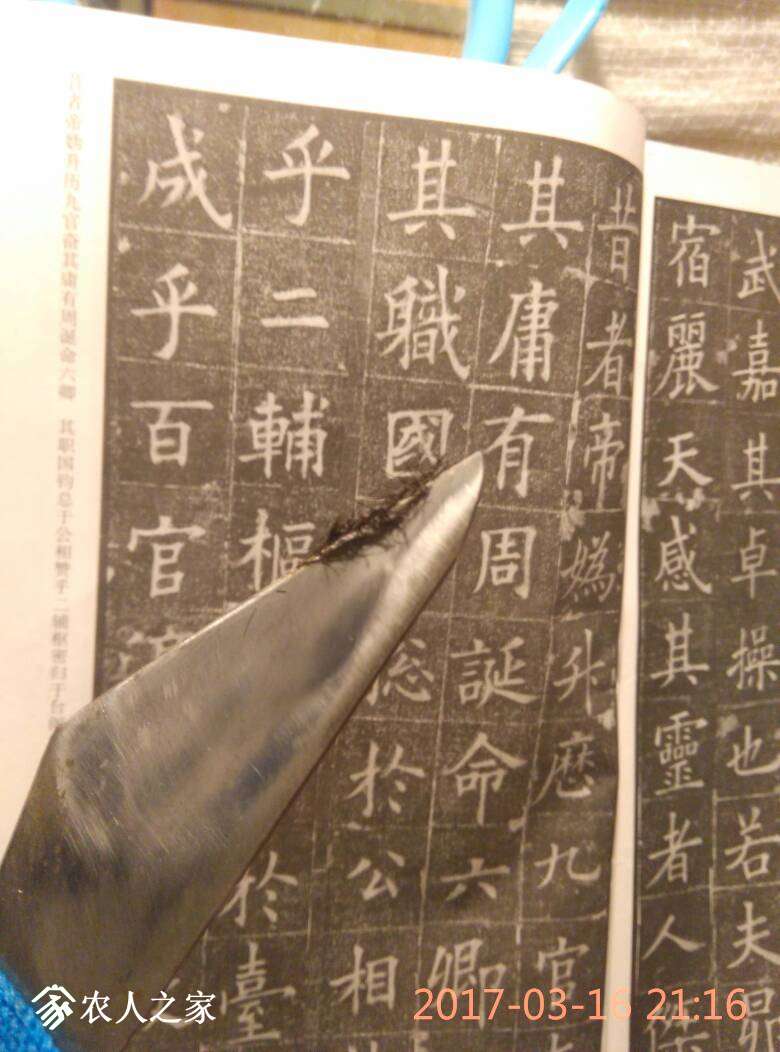 武嘉其卓操也若夫昴
宿麗天感其靈者人
昔者帝媯升厯九官
其庸有周誕命六卿
其職國總於公相
乎二輔樞於臺
成乎百官
昔者帝妫升历九官奋其庸有周诞命六卿 其职国钧总于公相赞乎二辅枢密归于台
农人之家
2017-03-16 21:16